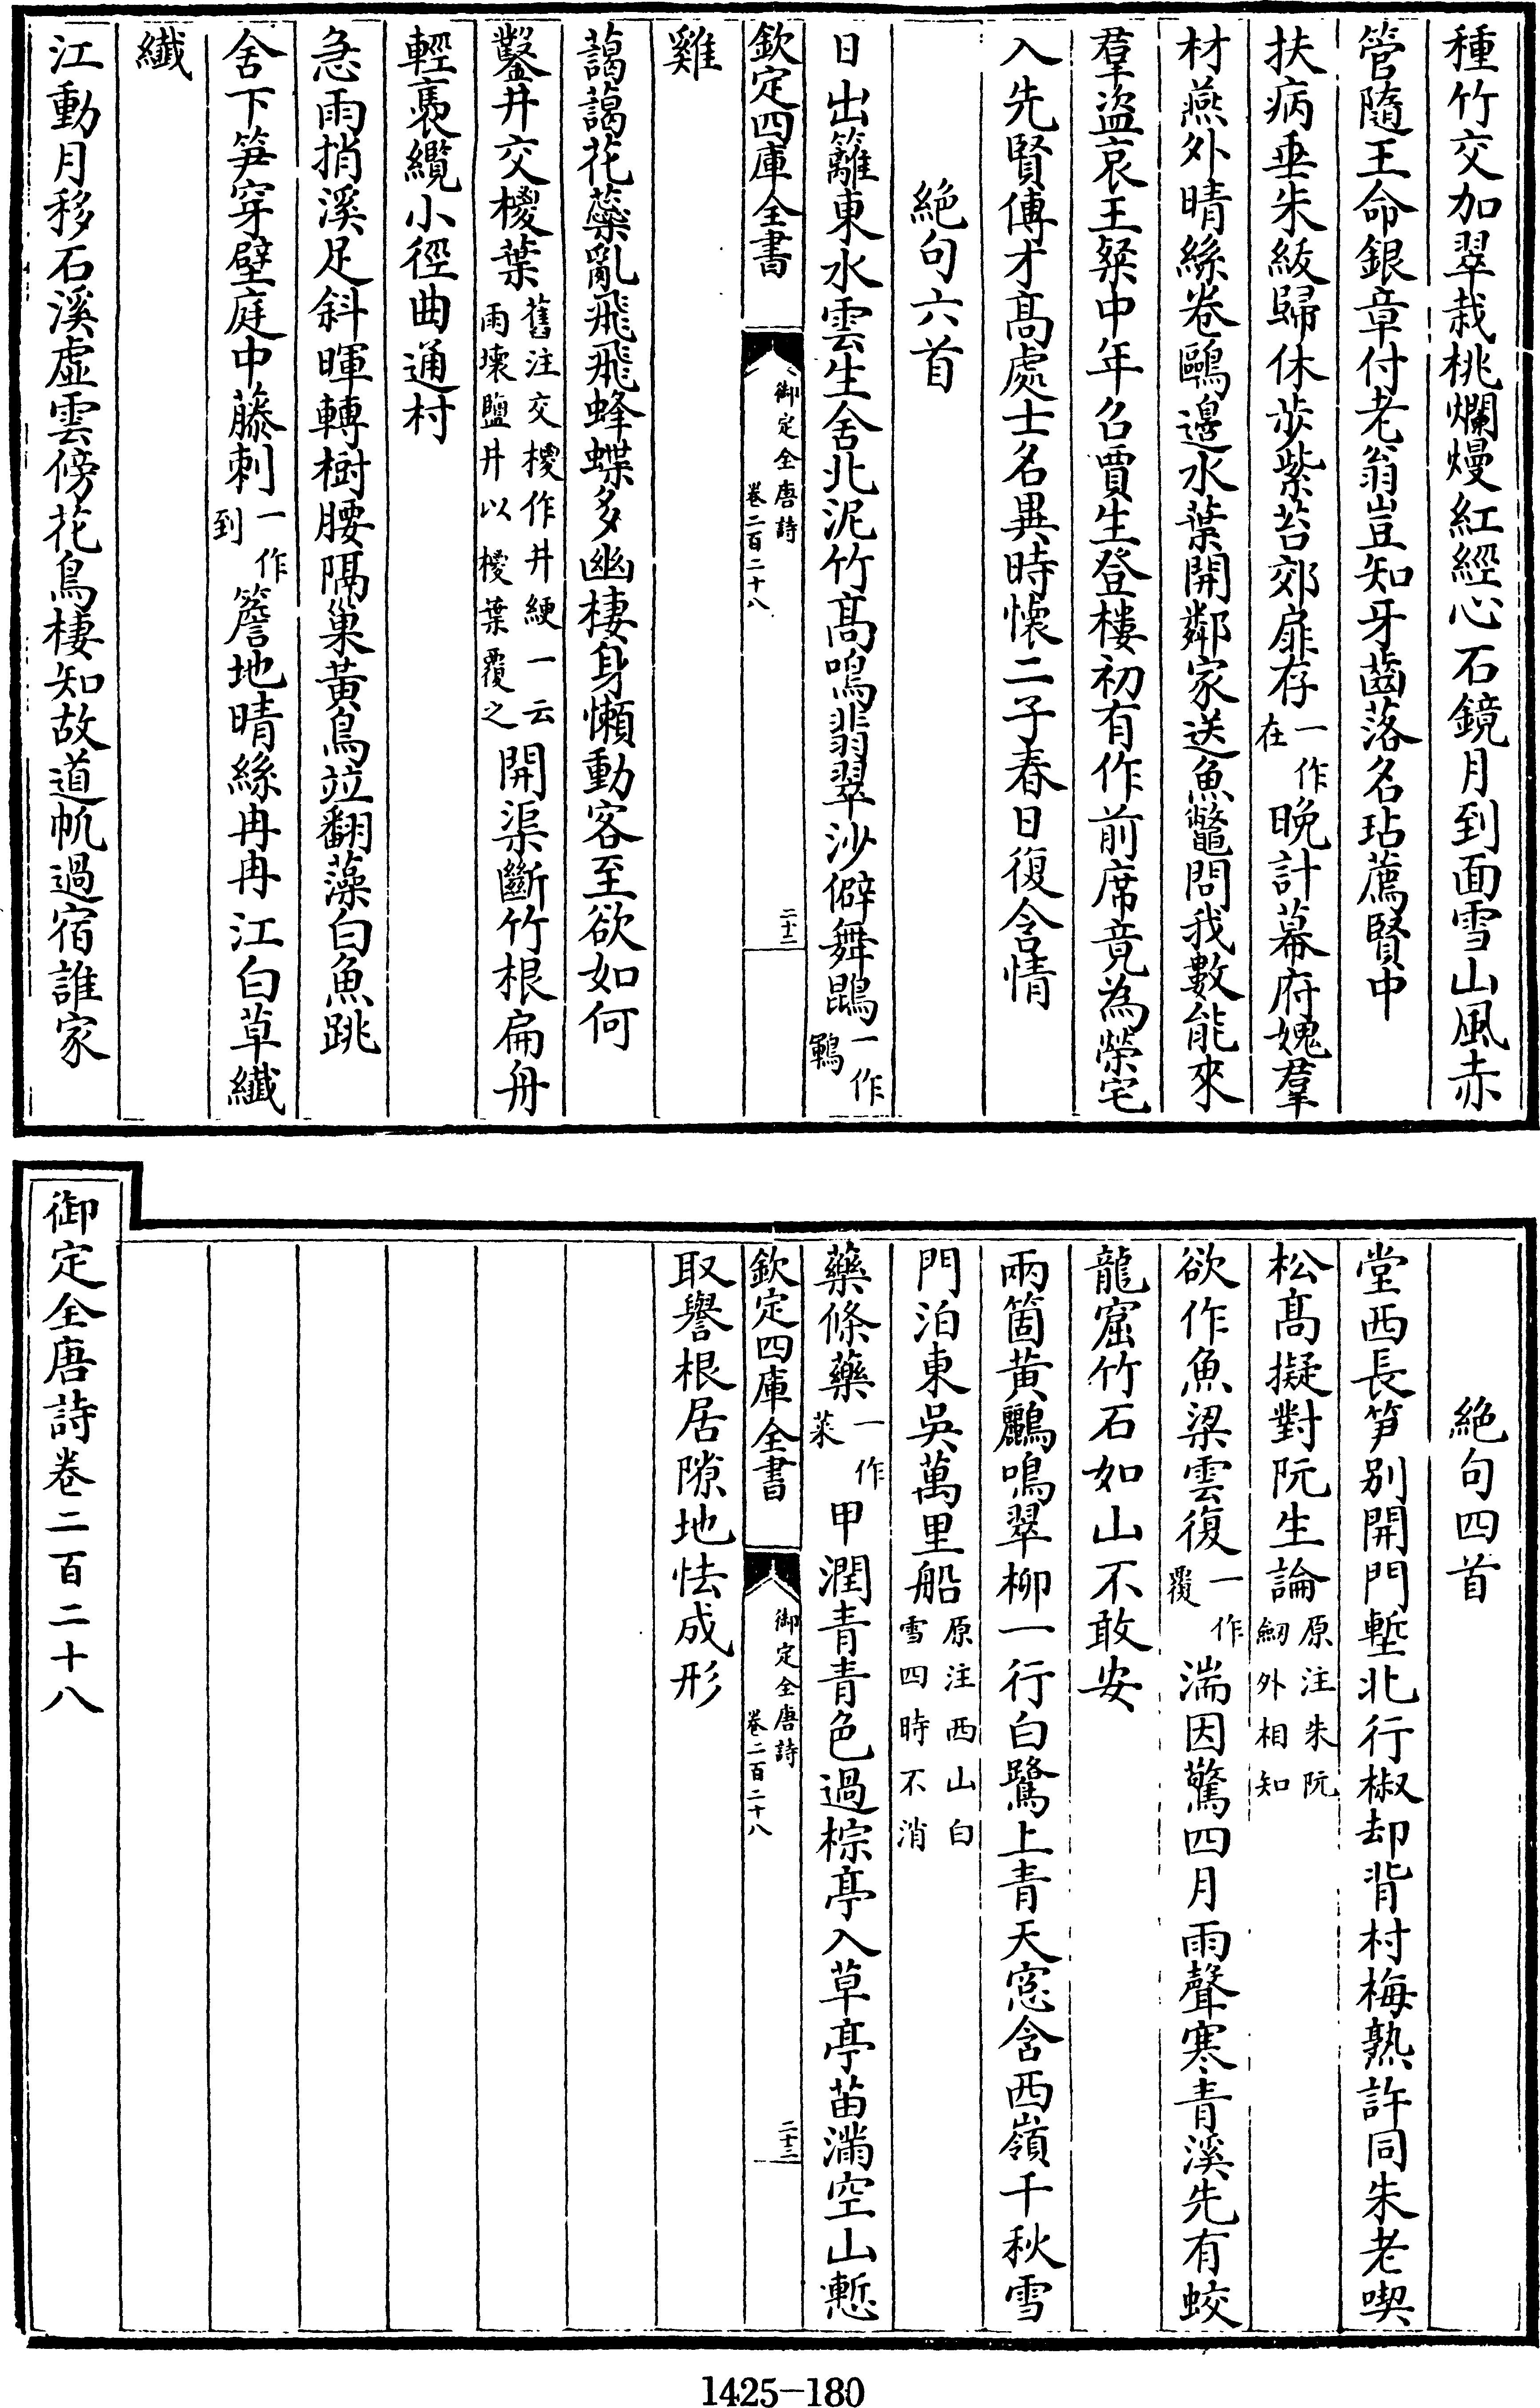 種竹交加翠栽桃爛熳紅經心石鏡月到面雪山風赤
管隨王命銀章付老翁豈知牙齒落名玷薦賢中
扶病垂朱紱歸休步紫苔郊扉存一作在晚計幕府媿羣
材燕外晴絲卷鷗邊水葉開鄰家送魚鼈問我數能來
羣盜哀王粲中年召賈生登樓初有作前席竟為榮宅
入先賢傅才髙處士名異時懷二子春日復含情
絶句六首
日出籬東水雲生舍北泥竹髙鳴翡翠沙僻舞鵾一作鶤
欽定四庫全書
御定全唐詩
卷二百二十八
二十二
雞
藹藹花蘂亂飛飛蜂蝶多幽棲身懶動客至欲如何
鑿井交椶葉舊注交椶作井綆一云雨壞鹽井以椶葉覆之開渠斷竹根扁舟
輕褭纜小徑曲通村
急雨捎溪足斜暉轉樹腰隔巢黃鳥竝翻藻白魚跳
舍下笋穿壁庭中藤刺一作到簷地晴絲冉冉江白草纖
纖
江動月移石溪虛雲傍花鳥棲知故道帆過宿誰家
絶句四首
堂西長笋别開門塹北行椒却背村梅熟許同朱老喫
松髙擬對阮生論原注朱阮劒外相知
欲作魚梁雲復一作覆湍因驚四月雨聲寒青溪先有蛟
龍窟竹石如山不敢安
兩箇黃鸝鳴翠柳一行白鷺上青天窓含西嶺千秋雪
門泊東吳萬里船原注西山白雪四時不消
藥條藥一作菜甲潤青青色過椶亭入草亭苗滿空山慙
欽定四庫全書
御定全唐詩
卷二百二十八
二十三
取譽根居隙地怯成形
御定全唐詩卷二百二十八
1425-180